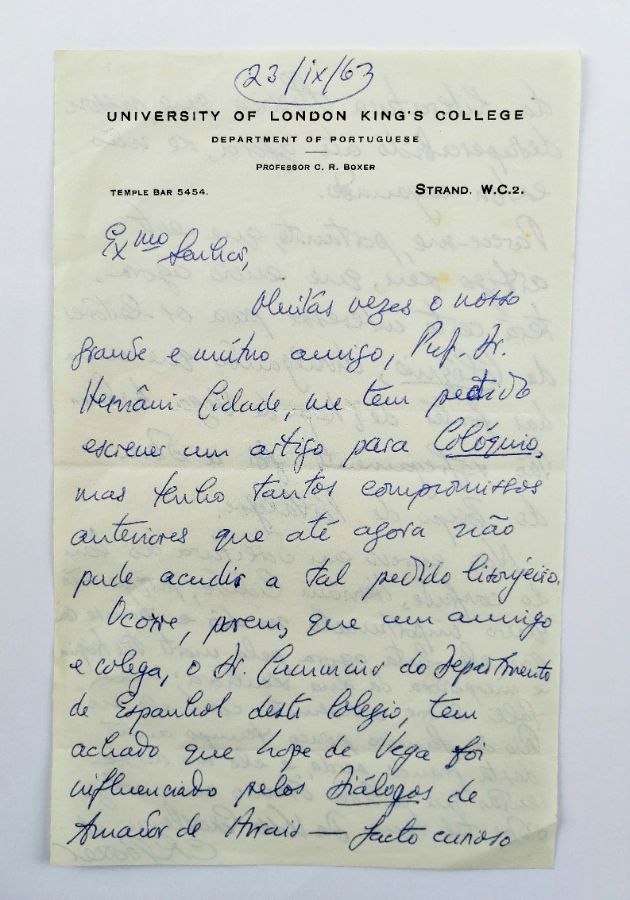 23/ix/63
UNIVERSITY OF LONDON KING'S COLLEGE
DEPARTMENT OF PORTUGUESE
PROFESSOR C. R. BOXER
TEMPLE BAR 5454.
STRAND, W.C.2.
Exmo Senhor,
Muitas vezes o nosso
grande e mútuo amigo, Prof. Dr.
Hernâni Cidade, me tem pedido
escrever um artigo para Colóquio,
mas tenho tantos compromissos
anteriores que até agora não
pude acudir a tal pedido lisonjeiro.
Ocorre, porem, que um amigo
e colega, o Dr. do Departmento
de Espanhol deste Colegio, tem
achado que Lope de Vega foi
influenciado pelos Diálogos de
Amador de Arrais — facto curioso